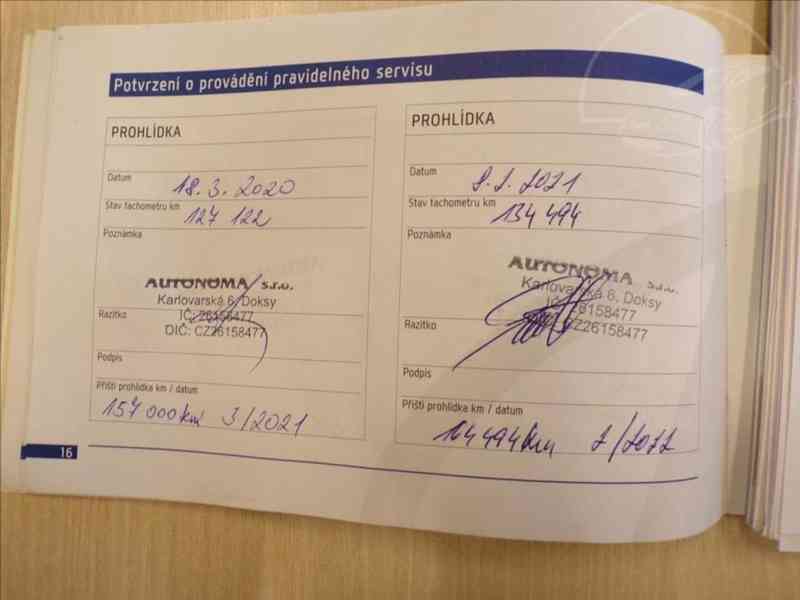 Potvrzení o provádění pravidelného servisu
PROHLÍDKA
Datum
18. 3. 2020
Stav tachometru km
127 122
Poznámka
AUTONOMA s.r.o.
Karlovarská 6, Doksy
IČ: 26158477
Razítko
DIČ: CZ26158477
Podpis
Příští prohlídka km / datum
157 000 km 3/2021
PROHLÍDKA
Datum
2021
Stav tachometru km
134 494
Poznámka
AUTONOMA s.r.o.
Karlovarská 6, Doksy
IČ: 26158477
Razítko
CZ26158477
Podpis
Příští prohlídka km / datum
164 494 km
16